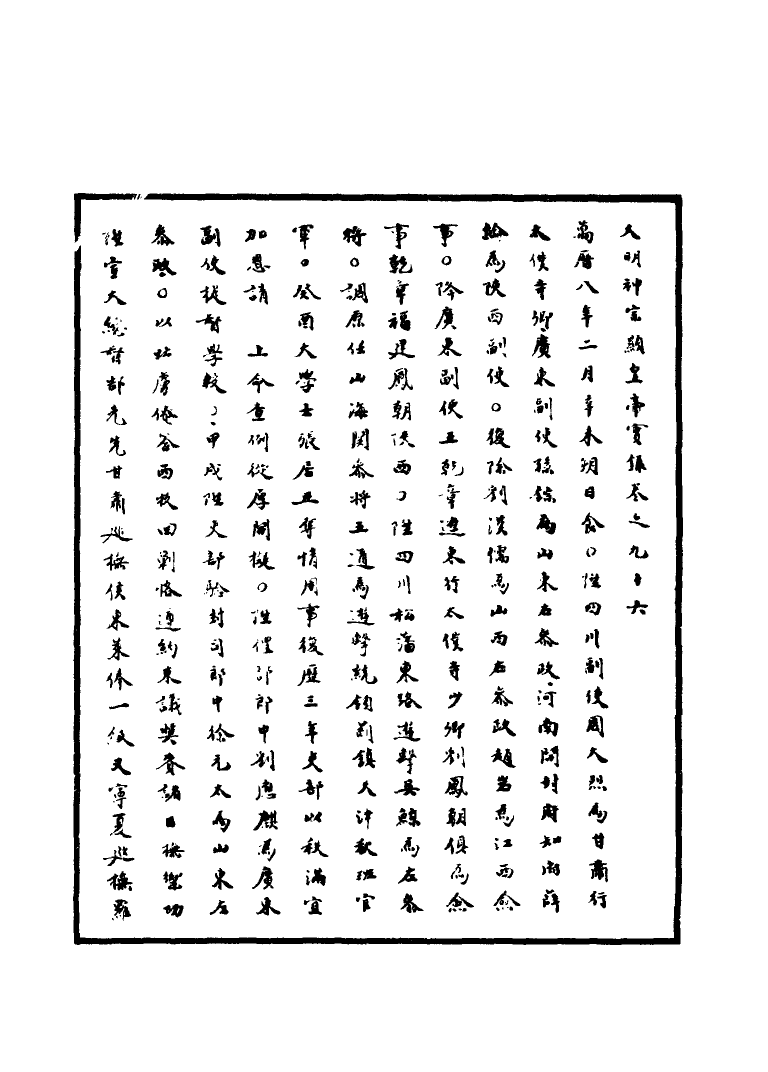 大明神宗顯皇帝實錄卷之九十六
萬曆八年二月辛未朔日食○陞四川副使周大烈為甘肅行
太僕寺卿廣東副使孫錝為山東右參政河南開封府知府薛
綸為陝西副使○復除劉漢儒為山西右參政趙岩為江西僉
事○降廣東副使王乾章遼東行太僕寺少卿劉鳳朝俱為僉
事乾章福建鳳朝陝西○陞四川松潘東路遊擊吳鯨為左參
將○調原任山海關參將王通為遊擊統領薊鎮天津秋班官
軍○癸酉大學士張居正奪情用事後歷三年吏部以秩滿宜
加恩請 上令查例從厚閱擬○陞禮部郎中劉應麒為廣東
副使提督學較○甲戌陞吏部驗封司郎中徐元太為山東左
參政○以北虜俺答西牧回剿恪遵約束議獎賚諸臣撫禦功
陞宣大總督鄭先先甘肅巡撫侯東萊俸一級又寧夏巡撫羅